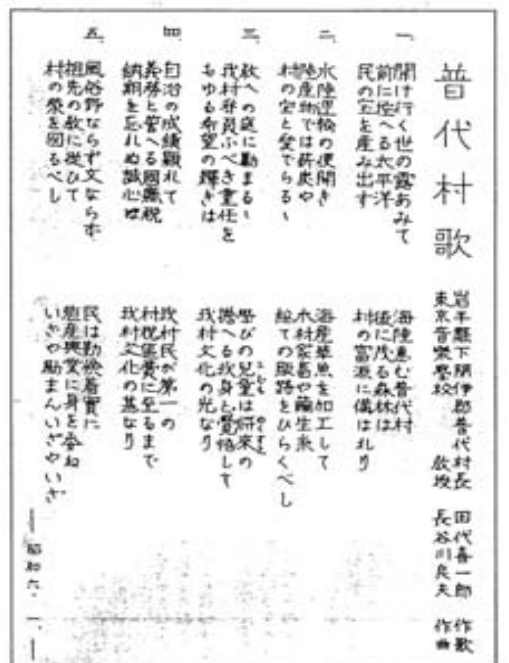 普代村歌
岩手縣下閉伊郡普代村長 田代喜一郎 作歌
東京音樂學校 教授 長谷川良夫 作曲
一、
開け行く世の露あみて
前に控へる太平洋
民の宝を産み出す
海陸恵む普代村
後に茂る森林は
村の富源に偽はなり
二、
水陸運輸の便開き
陸産物では薪炭や
村の宝と愛でらるゝ
海産藻魚を加工して
木材家畜や繭生糸
総ての販路をひらくべし
三、
教への庭に勤まるゝ
我村登員ふべき重任を
あゆる希望の輝きは
學びの兒童は将來の
携へる我身と覚悟して
我村文化の光なり
四、
自治の成績顕れて
義務と管へる國縣税
納期を忘れぬ誠心は
我村民が第一の
村税賦費に至るまで
我村文化の基なり
五、
風俗野ならず文ならず
祖先の教に從ひて
村の榮を図るべし
民は勤倹着實に
殖産興業に身を委ね
いざや勵まんいざやいざ
昭和六、一、一